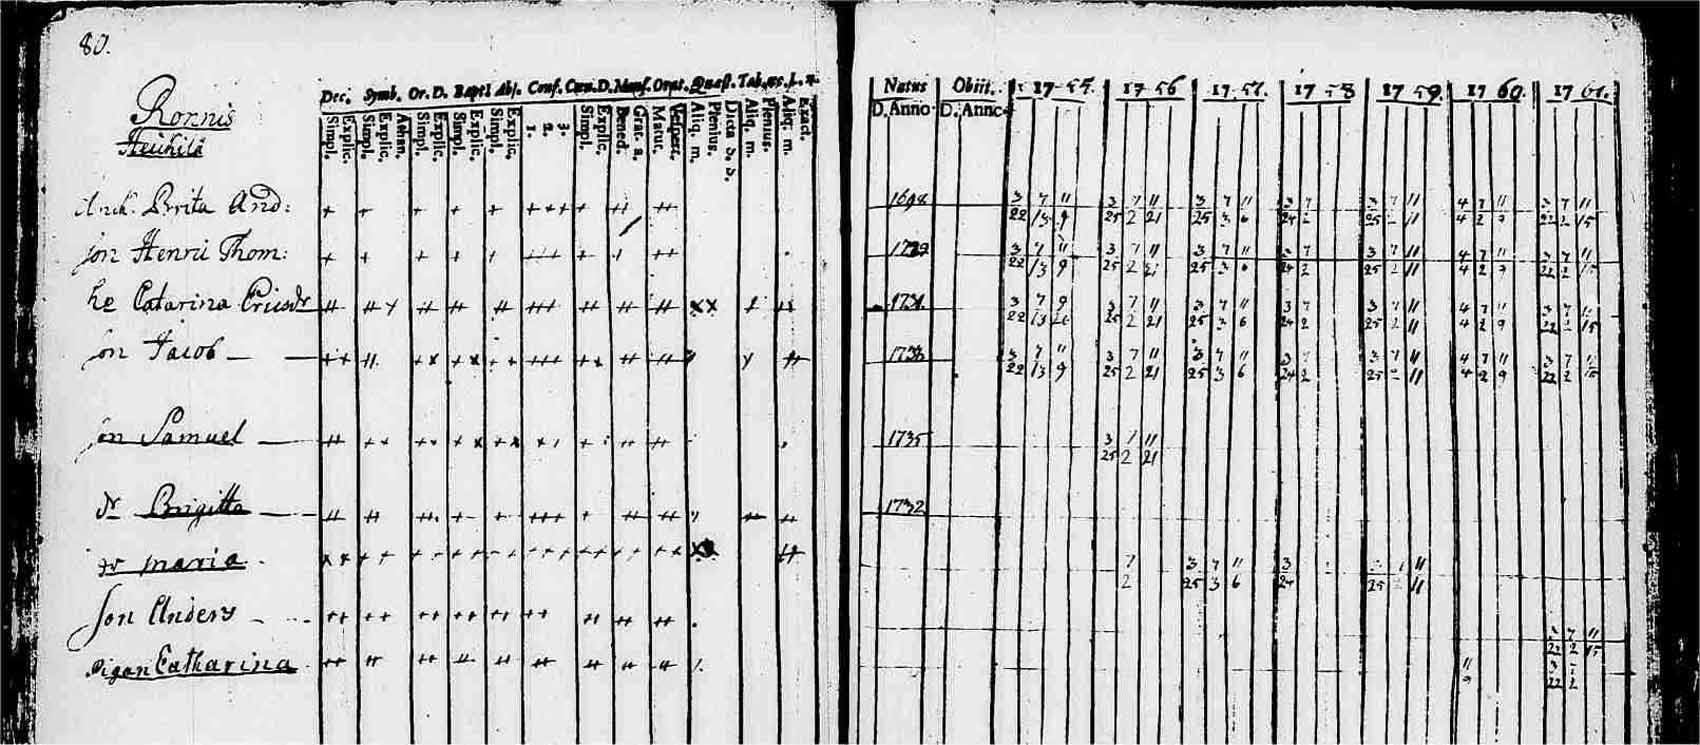 80.
Ronnis
Heikilä
Dec. Symb. Or. D. Bapti Abs. Conf. Cœn. D. Mens. Orat. Quæst. Tab. œc. L. n.
Simpl. Explic. Simpl. Explic. Athan. Simpl. Explic. Simpl. Explic. Simpl. Explic. 1. 2. 3. Simpl. Explic. Bened. Grat. a. Matut. Vespert. Aliq. m. Plenius. Dicta S. S. Aliq. m. Plenius. Aliq. m. Exact.
Natus Obiit. 1755. 1756 1757. 1758 1759. 1760. 1761.
D. Anno. D. Anno
Brita And: 1698
3 7 11 3 7 11 3 7 11 3 7 3 7 11 4 7 11 3 7 11
22 13 9 25 2 21 25 3 6 24 2 25 2 11 4 2 9 22 2 15
son Henric Thom: 1729
3 7 11 3 7 11 3 7 11 3 7 3 7 11 4 7 11 3 7 11
22 13 9 25 2 21 25 3 6 24 2 25 2 11 4 2 9 22 2 15
hu Catarina Ericsdr
3 7 9 3 7 11 3 7 11 3 7 3 7 11 4 7 11 3 7 11
22 13 25 2 21 25 3 6 24 2 25 2 11 4 2 9 22 2 15
son Jacob
3 7 11 3 7 11 3 7 11 3 7 3 7 11 4 7 11 3 7 11
22 13 9 25 2 21 25 3 6 24 2 25 2 11 4 2 9 22 2 15
son Samuel 1735
3 7 11
25 2 21
dr Brigitta 1732
dr Maria
7 3 7 11 3 11
2 25 3 6 24 25 11
son Anders
3 7 11
22 2 15
Pigan Catharina
11 3
9 22 2